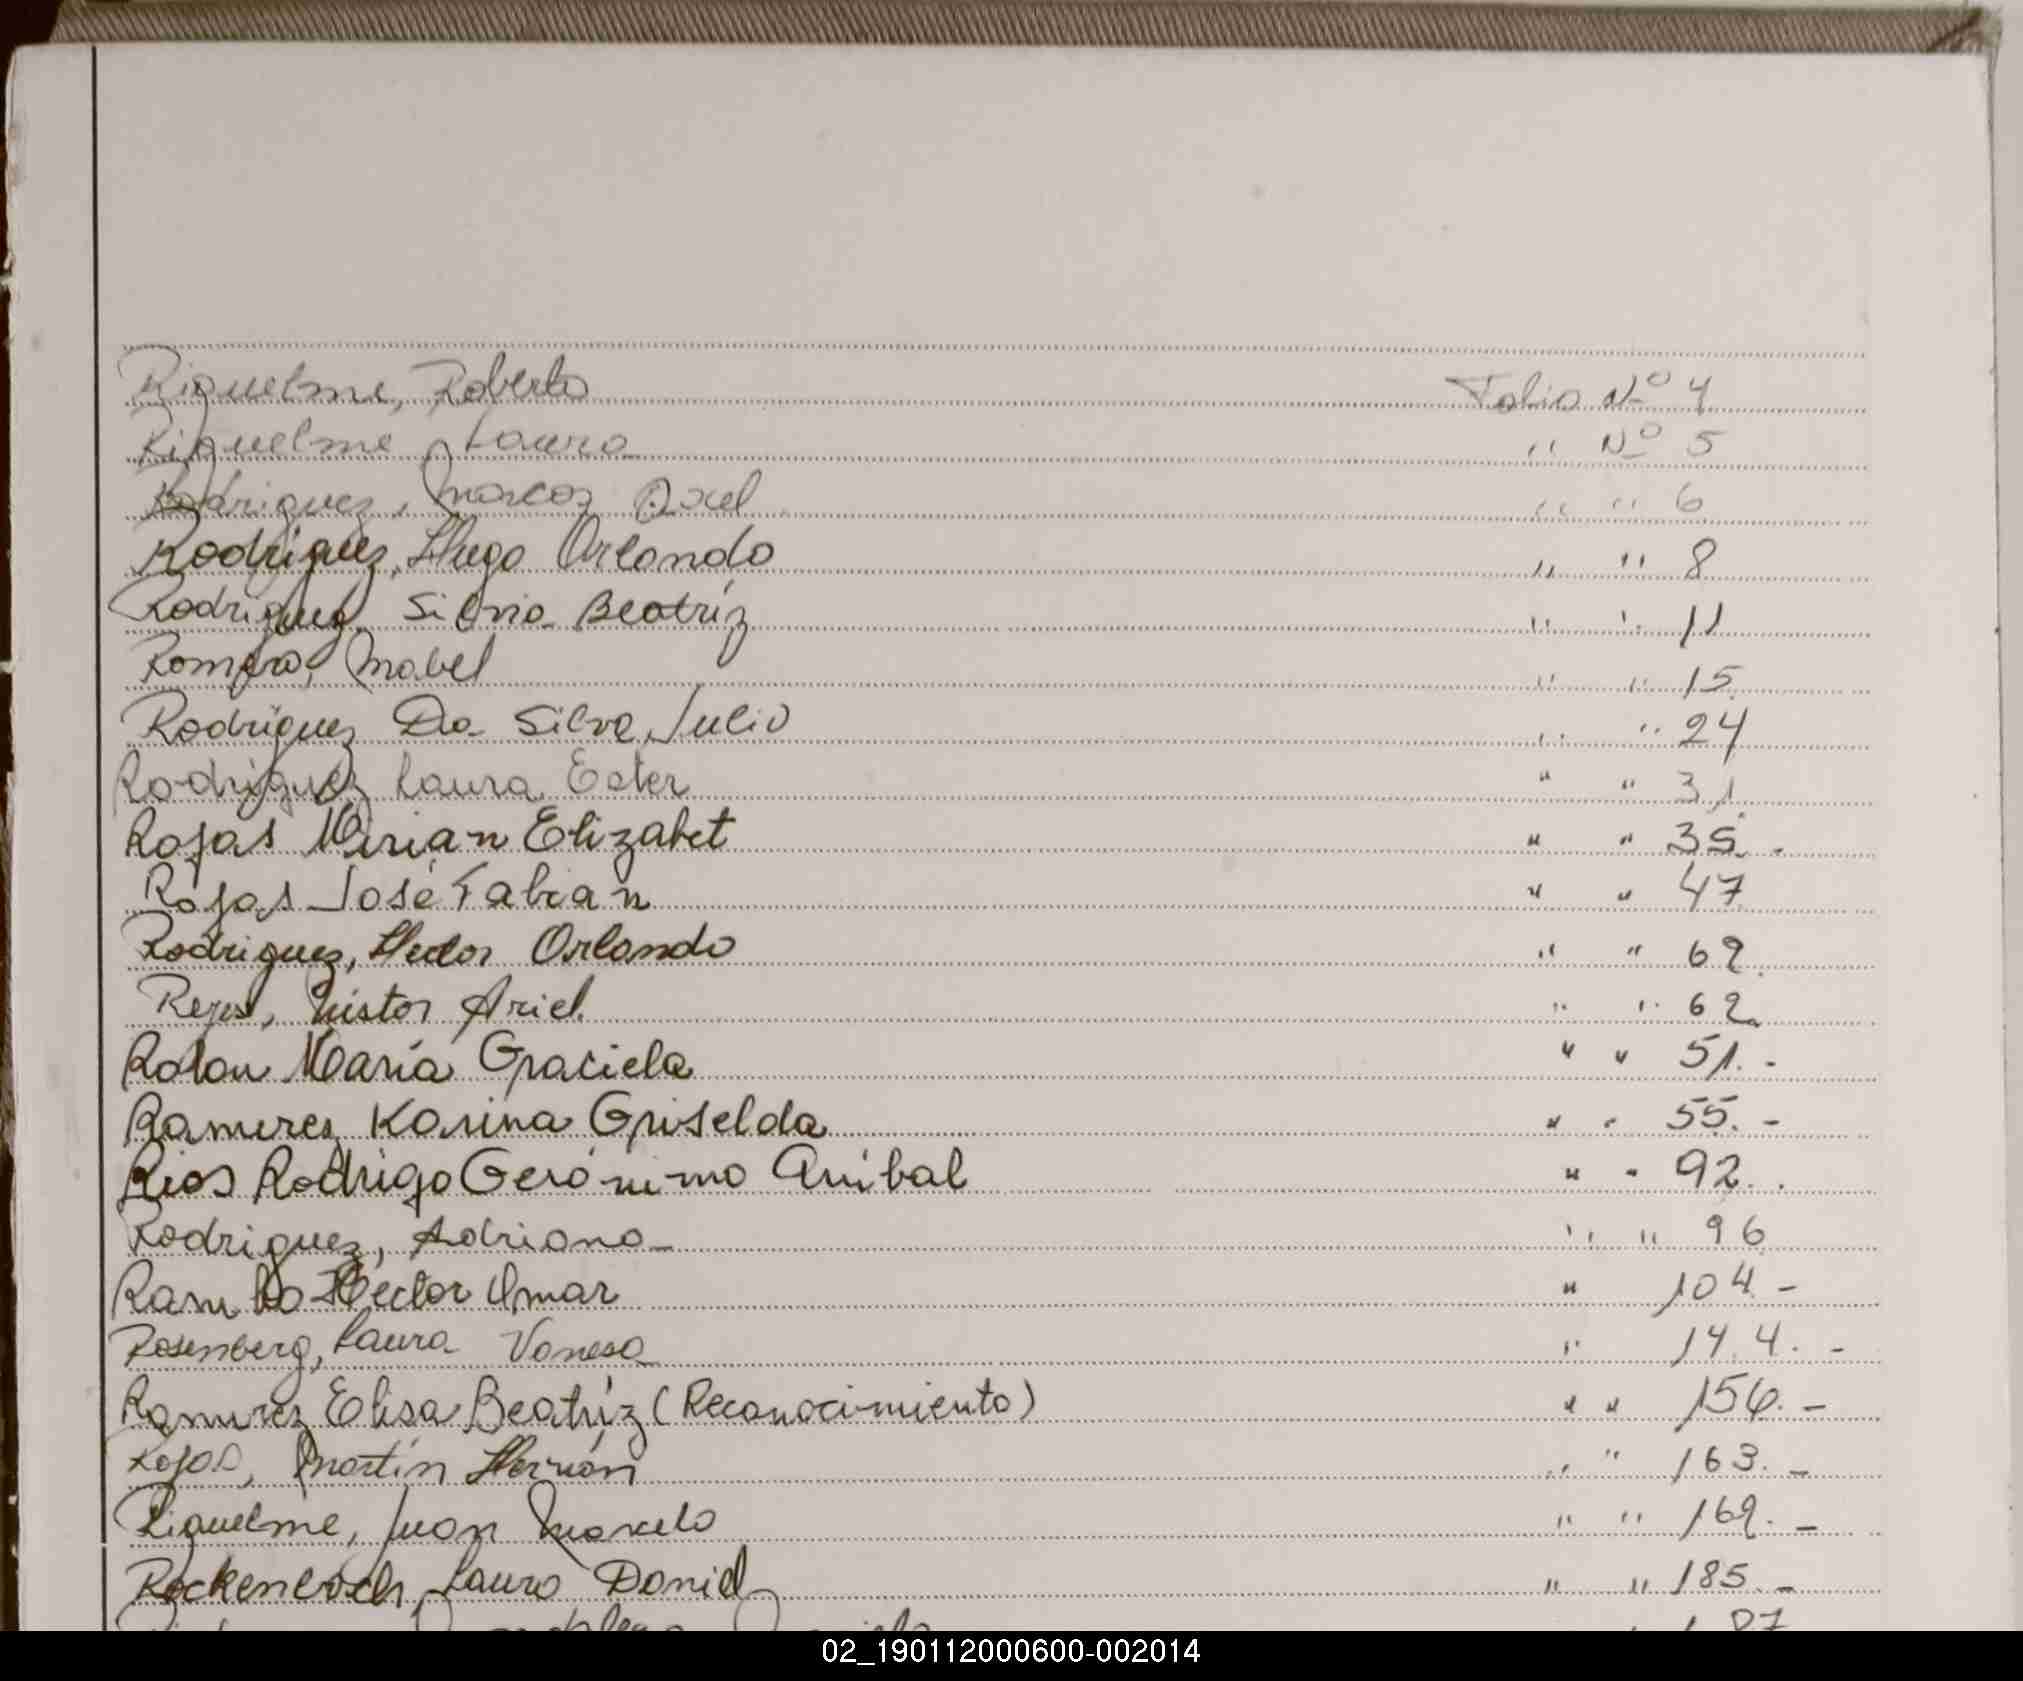 Riquelme, Roberto Folio Nº 4
Riquelme, Laura " Nº 5
Rodriguez, Marcos Axel " " 6
Rodriguez, Hugo Orlando " " 8
Rodriguez, Silvia Beatríz " " 11
Romero, Mabel " " 15
Rodriguez Da Silva, Julio " " 24
Rodriguez Laura Ester " " 31
Rojas Mirian Elizabet " " 35.-
Rojas José Fabian " " 47
Rodriguez, Hector Orlando " " 62
Reyes, Néstor Ariel " " 62
Rolon María Graciela " " 51.-
Ramirez Karina Griselda " " 55.-
Rios Rodrigo Gerónimo Aníbal " " 92..
Rodriguez, Adriana " " 96
Rambo Hector Omar " 104-
Rosenberg, Laura Vanesa " 144.-
Ramirez Elisa Beatríz (Reconocimiento) " " 156.-
Rojas, Martín Hernán " " 163.-
Riquelme, Juan Marcelo " " 169.-
Rockenbach, Lauro Daniel " " 185.-